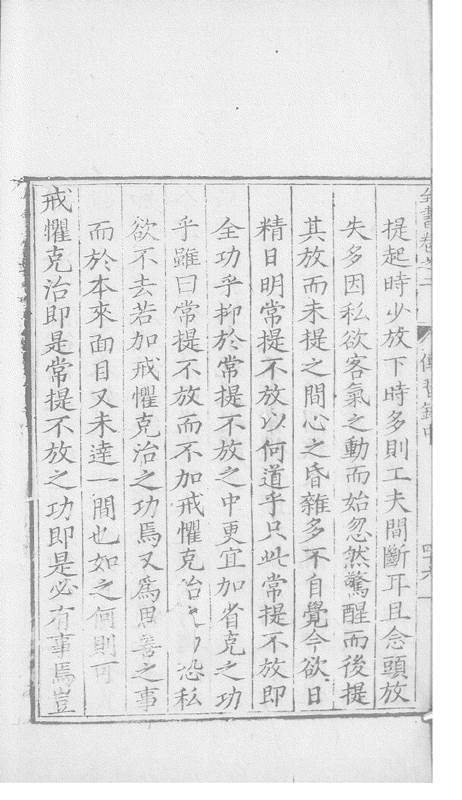 全書卷之二 傳習錄中 四六
提起時少放下時多則工夫間斷耳且念頭放
失多因私欲客氣之動而始忽然驚醒而後提
其放而未提之間心之昏雜多不自覺今欲日
精日明常提不放以何道乎只此常提不放即
全功乎抑於常提不放之中更宜加省克之功
乎雖曰常提不放而不加戒懼克治 恐私
欲不去若加戒懼克治之功焉又為思善之事
而於本來面目又未達一間也如之何則可
戒懼克治即是常提不放之功即是必有事焉豈